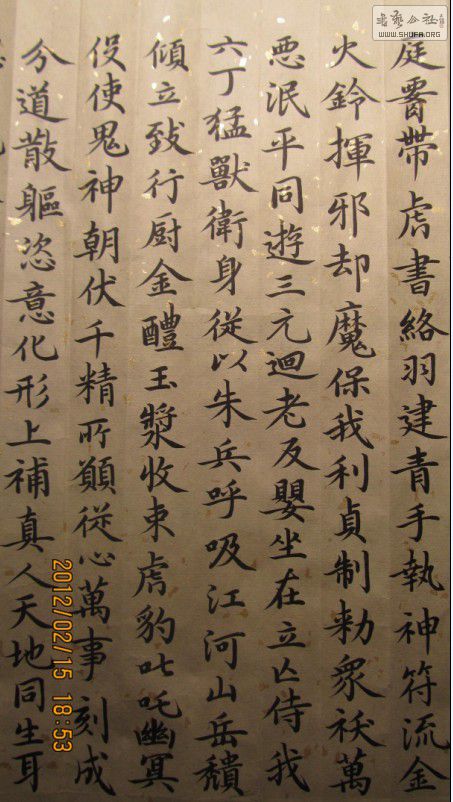 書藝公社
WWW.SHUFA.ORG
庭霄帶虎書絡羽建青手執神符流金
火鈴揮邪却魔保我利貞制勑衆祅萬
惡泯平同遊三元迴老反嬰坐在立亡侍我
六丁猛獸衛身從以朱兵呼吸江河山岳穨
傾立致行厨金醴玉漿收束虎豹叱吒幽冥
役使鬼神朝伏千精所願從心萬事刻成
分道散軀恣意化形上補真人天地同生耳
2012/02/15 18:53